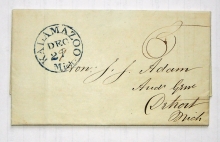 KALAMAZOO
DEC
27
Mich
5
Hon: J. J. Adam
Aud: Genl
Detroit
Mich